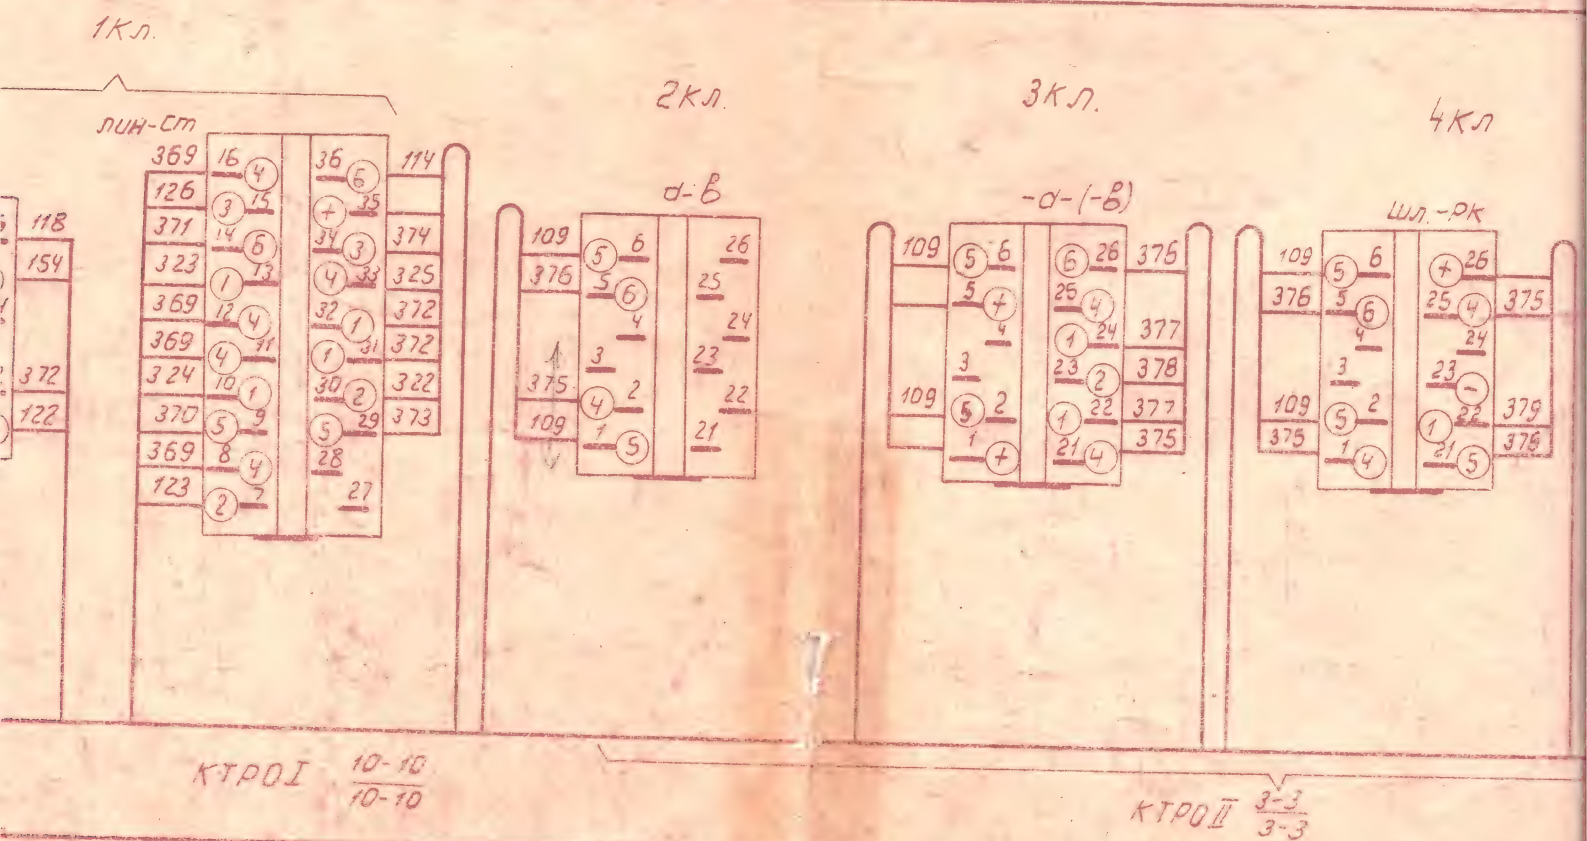 1кл.
2кл.
3кл.
4кл
лин-ст
d-в
-d-(-в)
шл.-рк
118
154
372
122
369 16 4
126 3 15
371 14 6
323 1 13
369 12 4
369 4 11
324 10 1
370 5 9
369 8 4
123 2 7
36 6 114
+ 35
34 3 374
4 33 325
32 1 372
1 31 372
30 2 322
5 29 373
28
27
109 5 6
376 5 6
4
3
375 4 2
109 1 5
26
25
24
23
22
21
109 5 6
5 +
4
3
109 5 2
1 +
6 26 376
25 4
1 24 377
23 2 378
1 22 377
21 4 375
109 5 6
376 5 6
4
3
109 5 2
375 1 4
+ 26
25 4 375
24
23 -
1 22 379
21 5 376
КТРО I 10-10
10-10
КТРО II 3-3
3-3